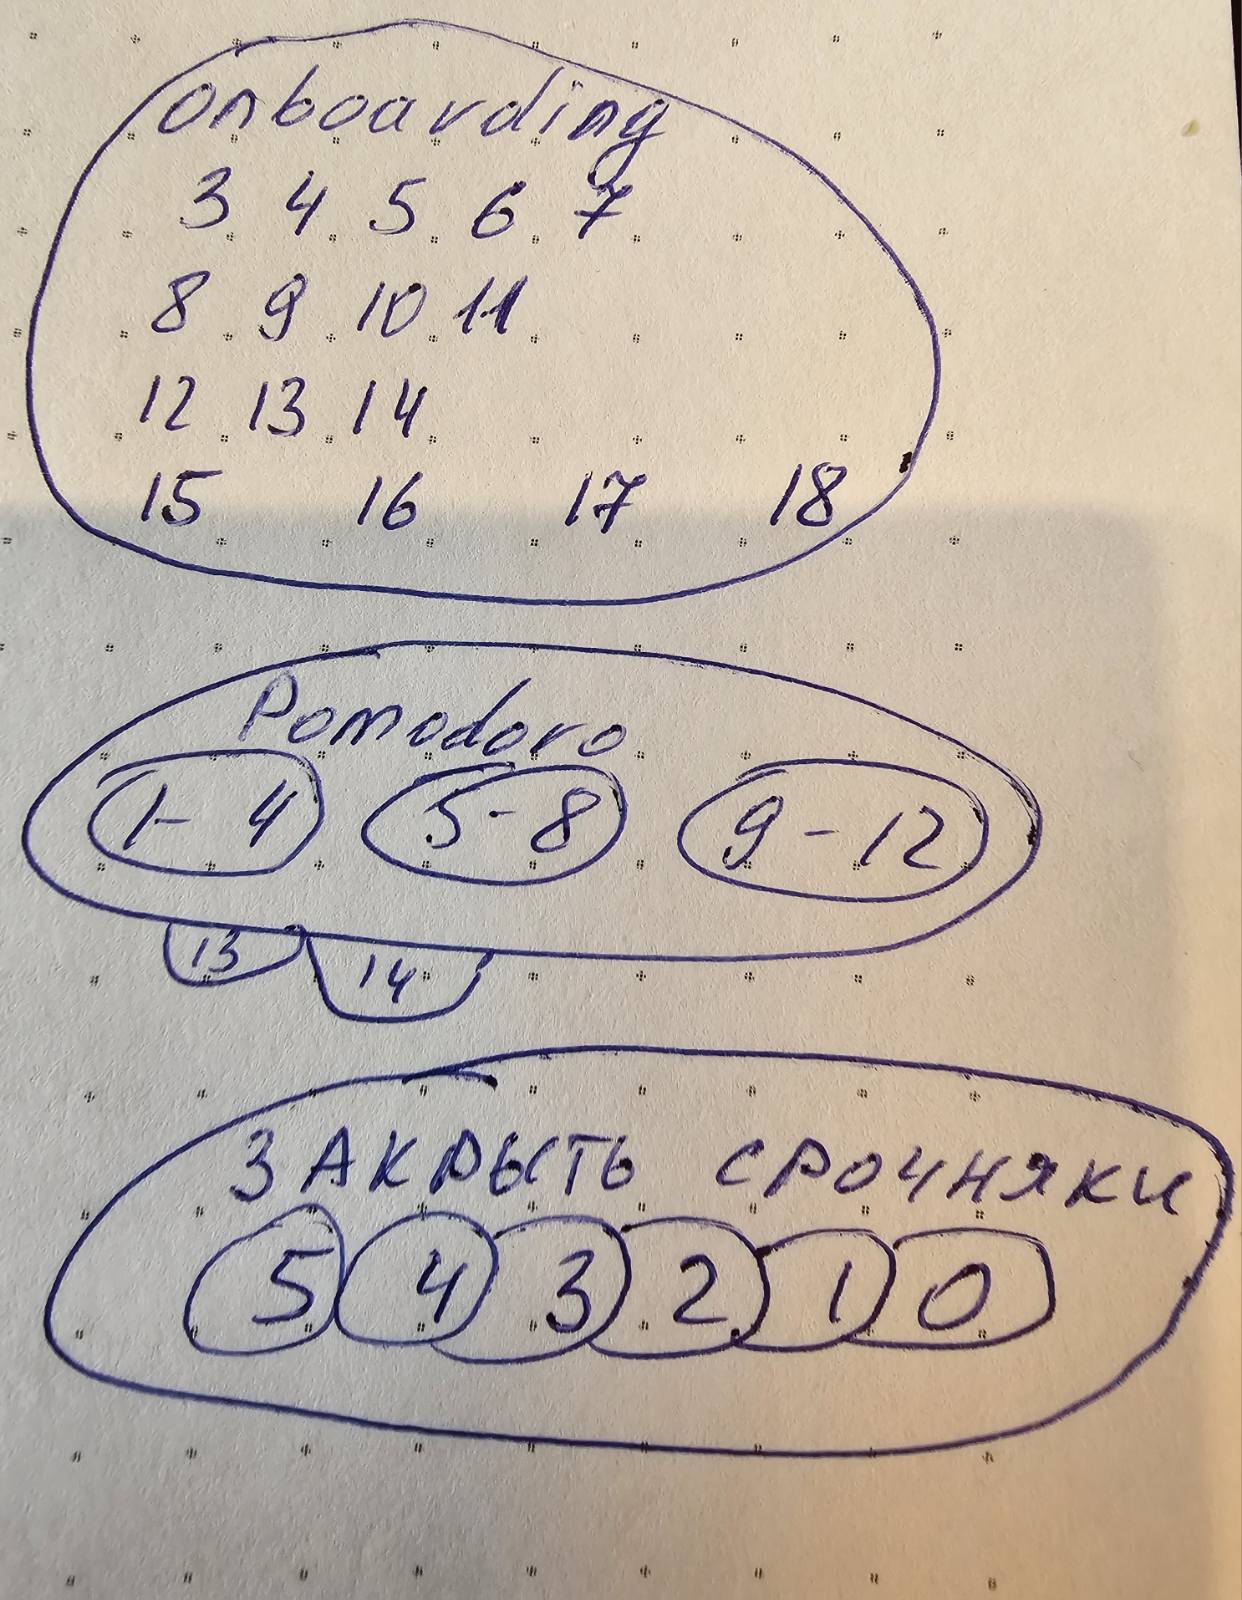 onboarding
3 4 5 6 7
8 9 10 11
12 13 14
15 16 17 18
Pomodoro
1-4 5-8 9-12
13 14
ЗАКРЫТЬ СРОЧНЯКИ
5 4 3 2 1 0